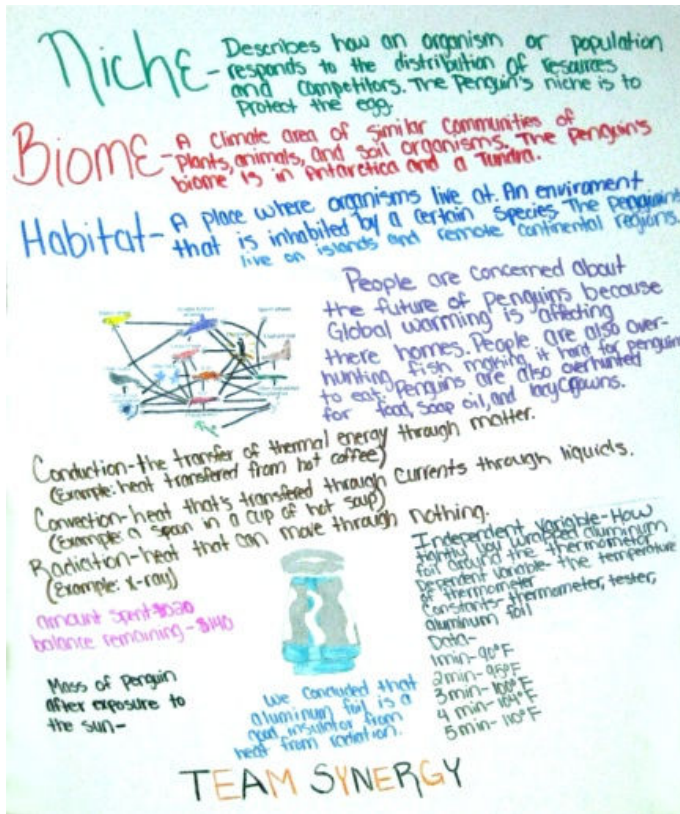 Niche- Describes how an organism or population
responds to the distribution of resources
and competitors. The Penguin's niche is to
Protect the egg.
Biome- A Climate area of similar communities of
plants, animals, and soil organisms. The Penguin's
biome is in Antarctica and a Tundra.
Habitat- A place where organisms live at. An enviroment
that is inhabited by a certain species. The
live on islands and remote continental regions.
People are concerned about
the future of penguins because
Global warming is affecting
there homes. People are also over-
hunting fish making it hard for penguin
to eat. Penguins are also overhunted
for food, soap oil, and
Conduction-the transfer of thermal energy through matter.
(Example: heat transfered from hot coffee)
Convection-heat that's transfered through currents through liquids.
(Example: a spoon in a cup of hot soup)
Radiation-heat that can move through nothing.
(Example: x-ray)
amount spent-
balance remaining-$140
Mass of Penguin
after exposure to
the sun-
We Concluded that
aluminum foil is a
good insulator from
heat from radiation.
Independent Variable-How
tightly you wrapped aluminum
foil around the thermometor
Dependent Variable-the temperature
of thermometor
Constants-thermometor, tester,
aluminum foil
Data-
1min-90°F
2min-95°F
3min-100°F
4 min-104°F
5min-110°F
TEAM SYNERGY